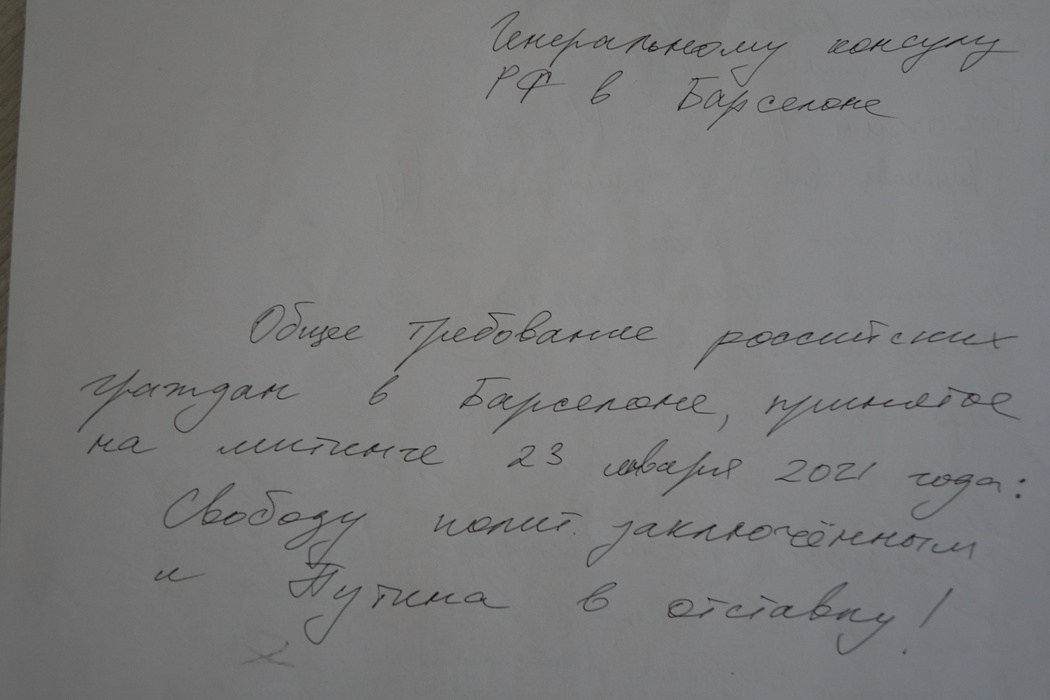 Генеральному консулу
РФ в Барселоне
Общее требование российских
граждан в Барселоне, принятое
на митинге 23 января 2021 года:
Свободу полит. заключённым
и Путина в отставку!